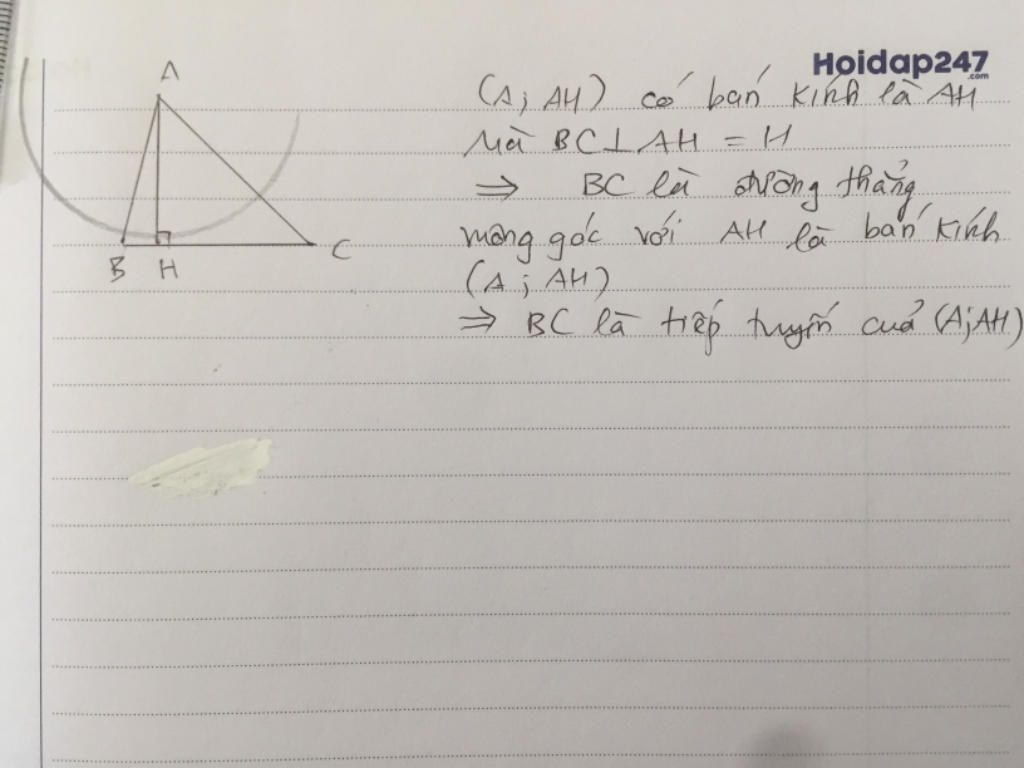 Hoidap247
.com
A
B H C
(A; AH) có bán kính là AH
Mà BC⊥ AH = H
⇒ BC là đường thẳng
vuông góc với AH là bán kính
(A; AH)
⇒ BC là tiếp tuyến của (A;AH)